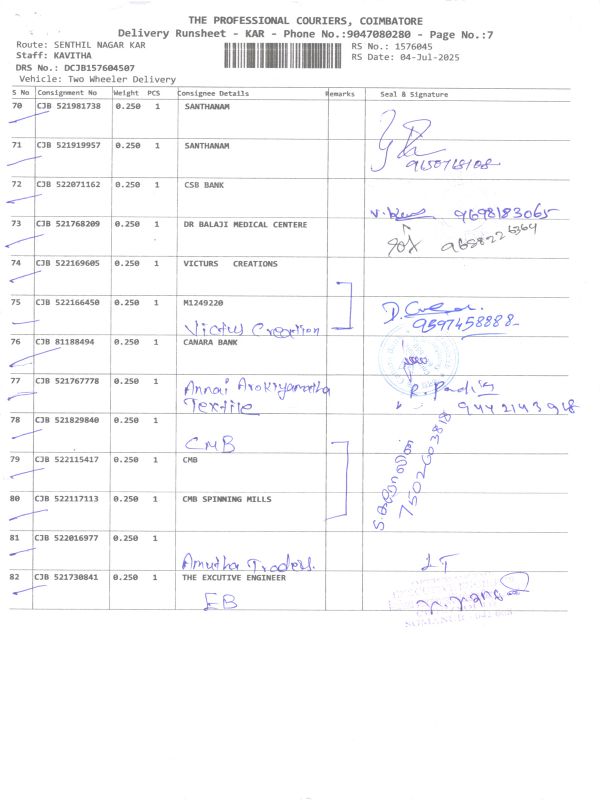 THE PROFESSIONAL COURIERS, COIMBATORE
Delivery Runsheet - KAR - Phone No.:9047080280 - Page No.:7
Route: SENTHIL NAGAR KAR RS No.: 1576045
Staff: KAVITHA RS Date: 04-Jul-2025
DRS No.: DCJB157604507
Vehicle: Two Wheeler Delivery
S No Consignment No Weight PCS Consignee Details Remarks Seal & Signature
70 CJB 521981738 0.250 1 SANTHANAM
71 CJB 521919957 0.250 1 SANTHANAM
9150768108
72 CJB 522071162 0.250 1 CSB BANK
9698183065
73 CJB 521768209 0.250 1 DR BALAJI MEDICAL CENTERE
74 CJB 522169605 0.250 1 VICTURS CREATIONS
75 CJB 522166450 0.250 1 M1249220
Victus Creation 9597458888
76 CJB 81188494 0.250 1 CANARA BANK
77 CJB 521767778 0.250 1 Annai Arokiyamatha
Textile
9442143918
78 CJB 521829840 0.250 1
CMB
7502603818
79 CJB 522115417 0.250 1 CMB
80 CJB 522117113 0.250 1 CMB SPINNING MILLS
81 CJB 522016977 0.250 1
Amutha Traders.
82 CJB 521730841 0.250 1 THE EXCUTIVE ENGINEER
EB